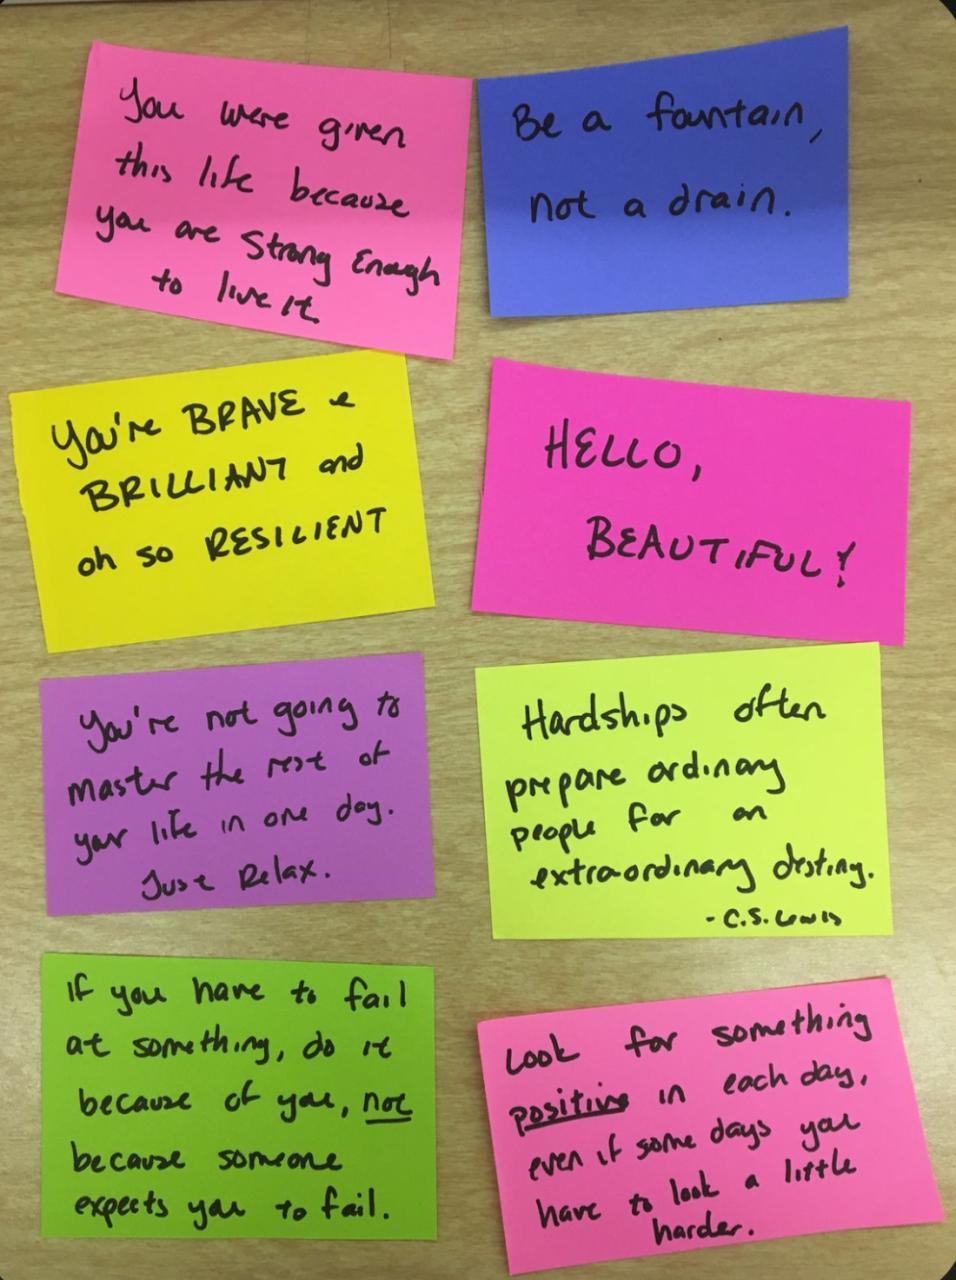 You were given
this life because
you are strong enough
to live it.
Be a fountain,
not a drain.
You're BRAVE &
BRILLIANT and
oh so RESILIENT
HELLO,
BEAUTIFUL!
You're not going to
master the rest of
your life in one day.
Just Relax.
Hardships often
prepare ordinary
people for an
extraordinary destiny.
- C.S. Lewis
If you have to fail
at something, do it
because of you, not
because someone
expects you to fail.
Look for something
positive in each day,
even if some days you
have to look a little
harder.